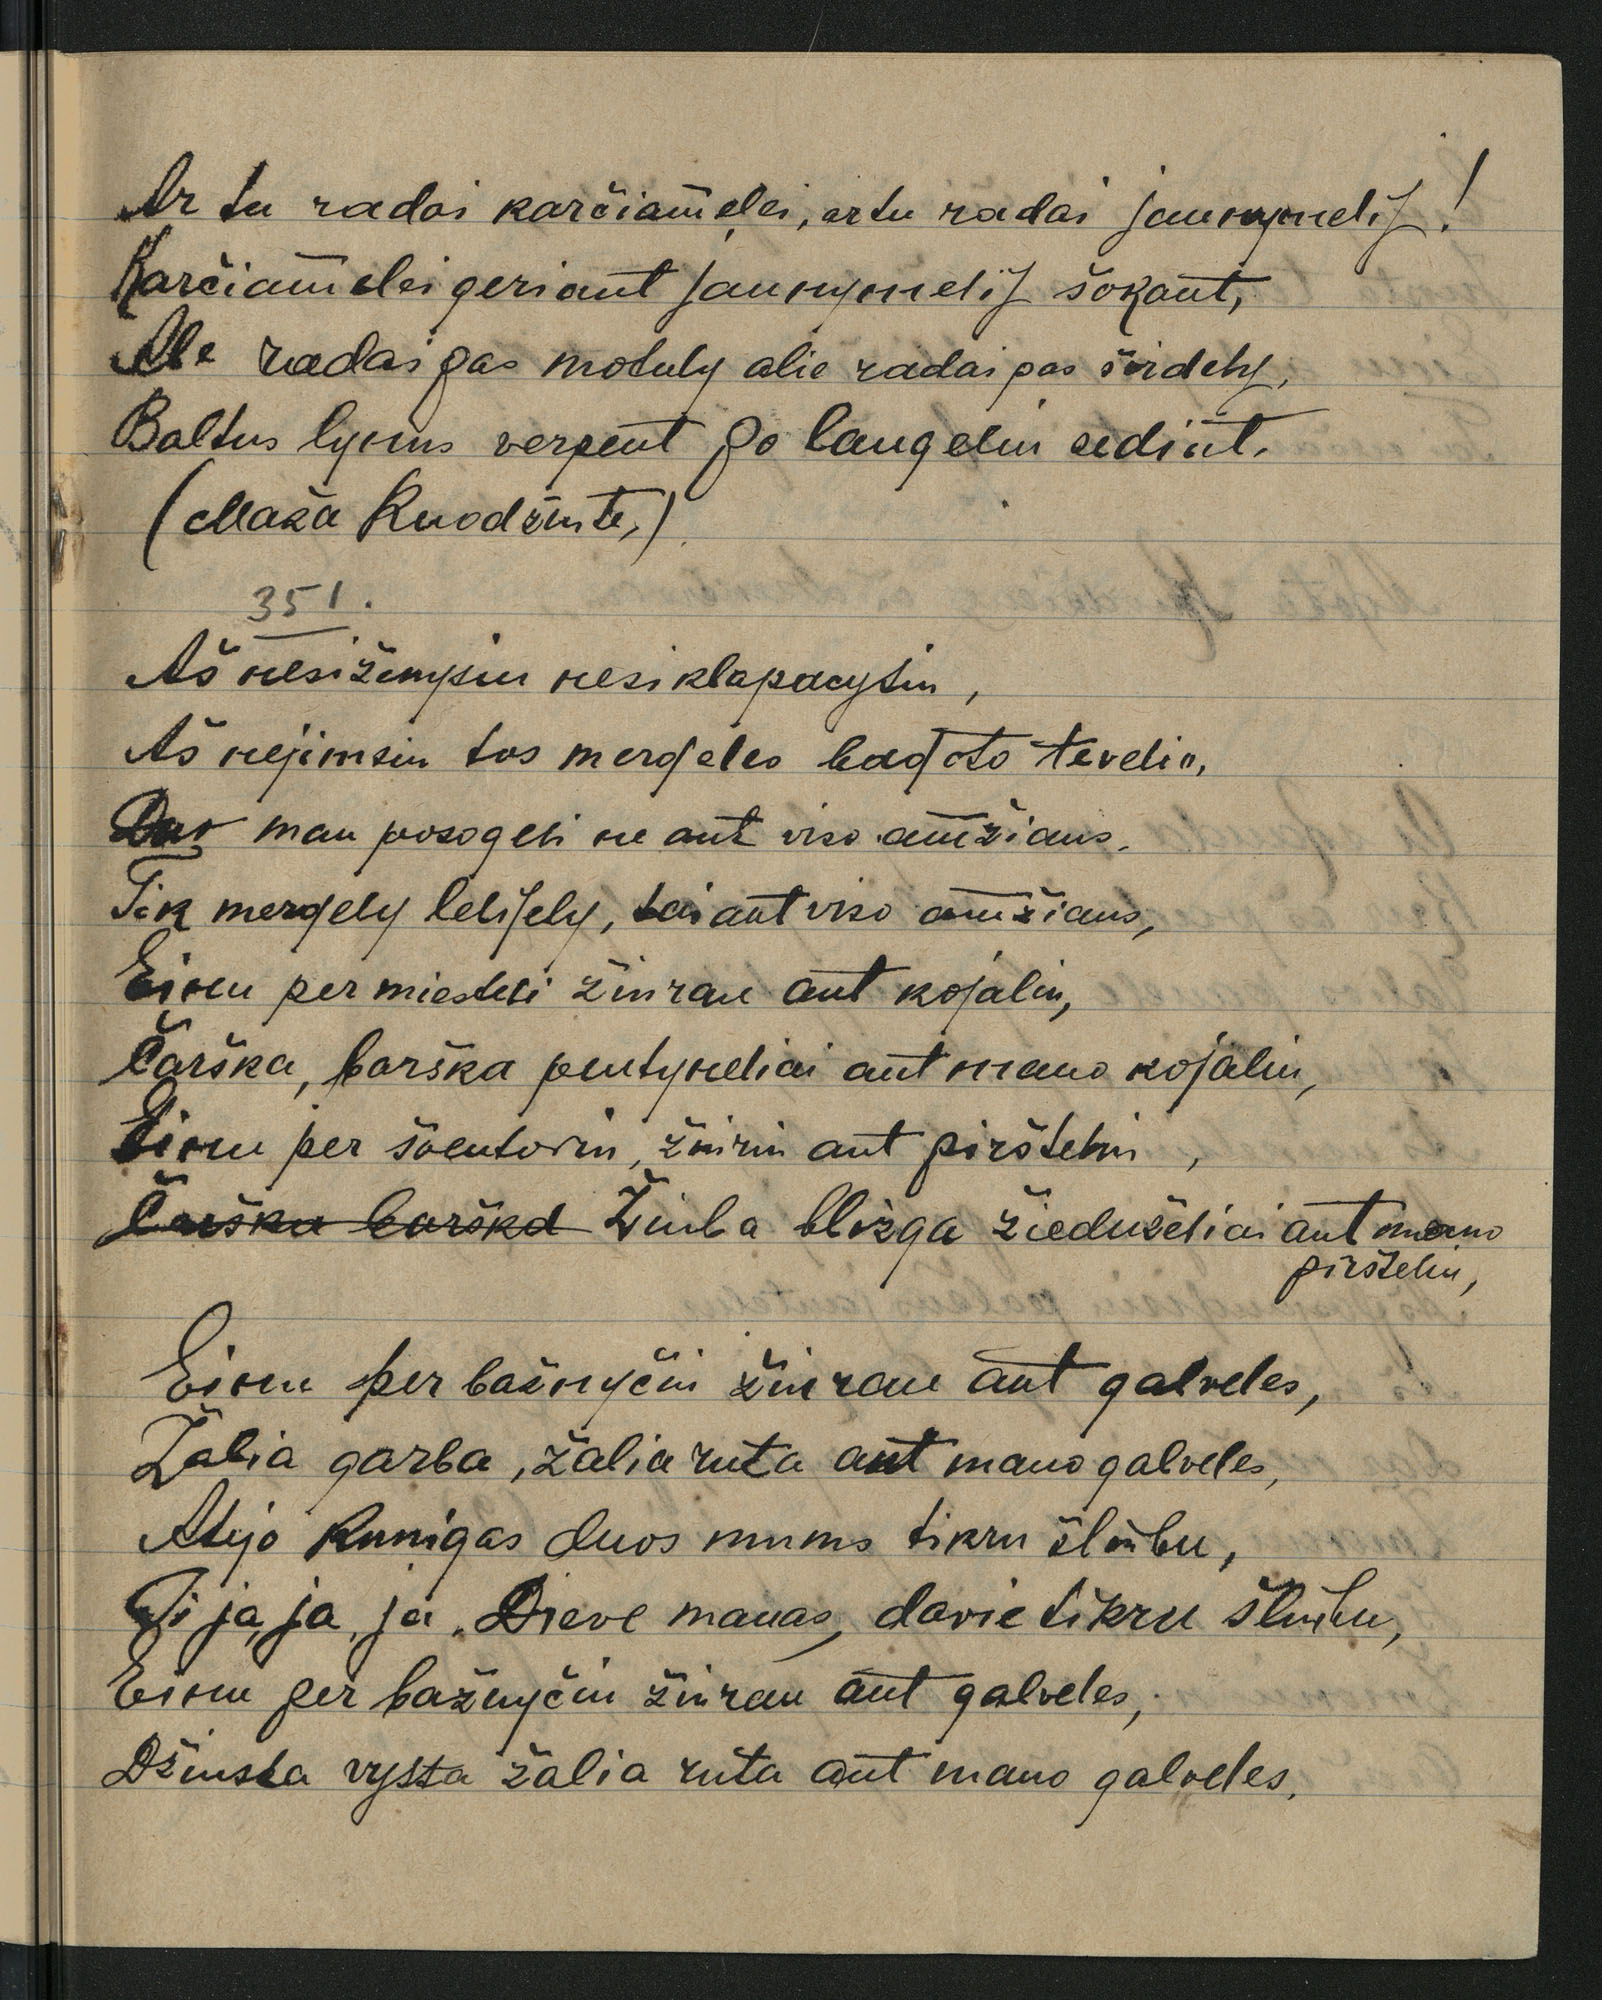 Ar tu radai karčiam̃elei, ar tu radai jaunymelij!
Karčiam̃elei geriant̃ jaunymelij šokant̃,
Ale radai pas motuly alie radai pas širdely,
Baltus lynus verpent̃ po langeliu sedint̃.
(Maža Kuodžiute,)
351.
Aš nesižinysiu nesiklapacysiu,
Aš nejimsiu tos mergeles bagoto tevelio,
Duo man posogeli ne ant̃ viso am̃žiaus.
Tik mergely lelijely, tai ant̃ viso am̃žiaus,
Einu per miesteli žiurau ant̃ kojaliu,
Čarška, barška pentyneliai ant̃ mano kojaliu,
Einu per šventoriu, žiuriu ant̃ piršteliu,
Čarška barška Žiuba blizga žieduželiai ant̃ mano
piršteliu,
Einu per bažnyčiu žiurau ant̃ galveles,
Žalia garba, žalia ruta ant̃ mano galveles,
Atejo Kunigas duos mums tikru šliubu,
Oi ja, ja, ja, Dieve manas, davie tikru šliubu,
Einu per bažnyčiu žiurau ant̃ galveles,
Džiusta vysta žalia ruta ant̃ mano galveles.